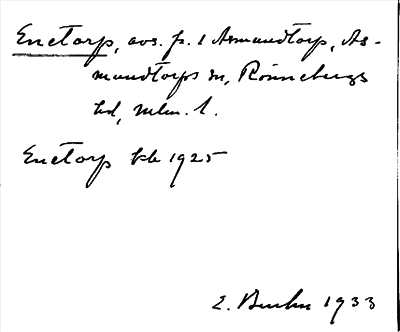 Enetorp, avs. fr. 1 Asmundtorp, As-
mundtorps sn, Rönnebergs
hd, mlm. l.
Enetorp kb 1925
E. Bruhn 1933